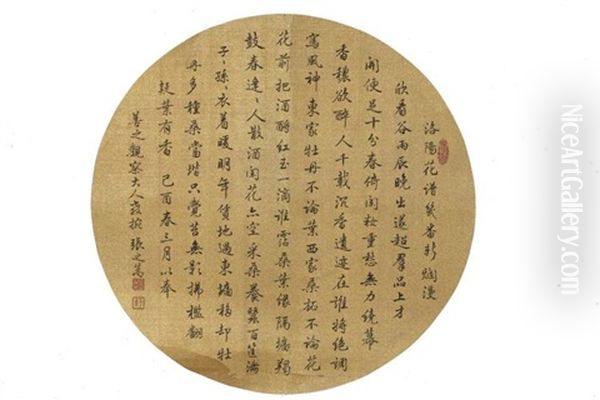 洛陽花譜幾番新爛漫
欣看谷雨辰晚出逾超羣品上才
開便足十分春倚闌妝重愁無力繞幕
香穠欲醉人千載沉香遺迹在誰將絕調
寫風神東家牡丹不論葉西家桑柘不論花
花前把酒酹紅玉一滴誰霑桑葉綠隔墻羯
鼓春逢〻人散酒闌花亦空采桑養蠶百筐滿
子〻孫〻衣着暖明年賃地過東墻移却牡
丹多種桑當堦只覺苔無影拂檻翻
疑葉有香 己酉春三月以奉
善之觀察大人教 張之萬
NiceArtGallery.com